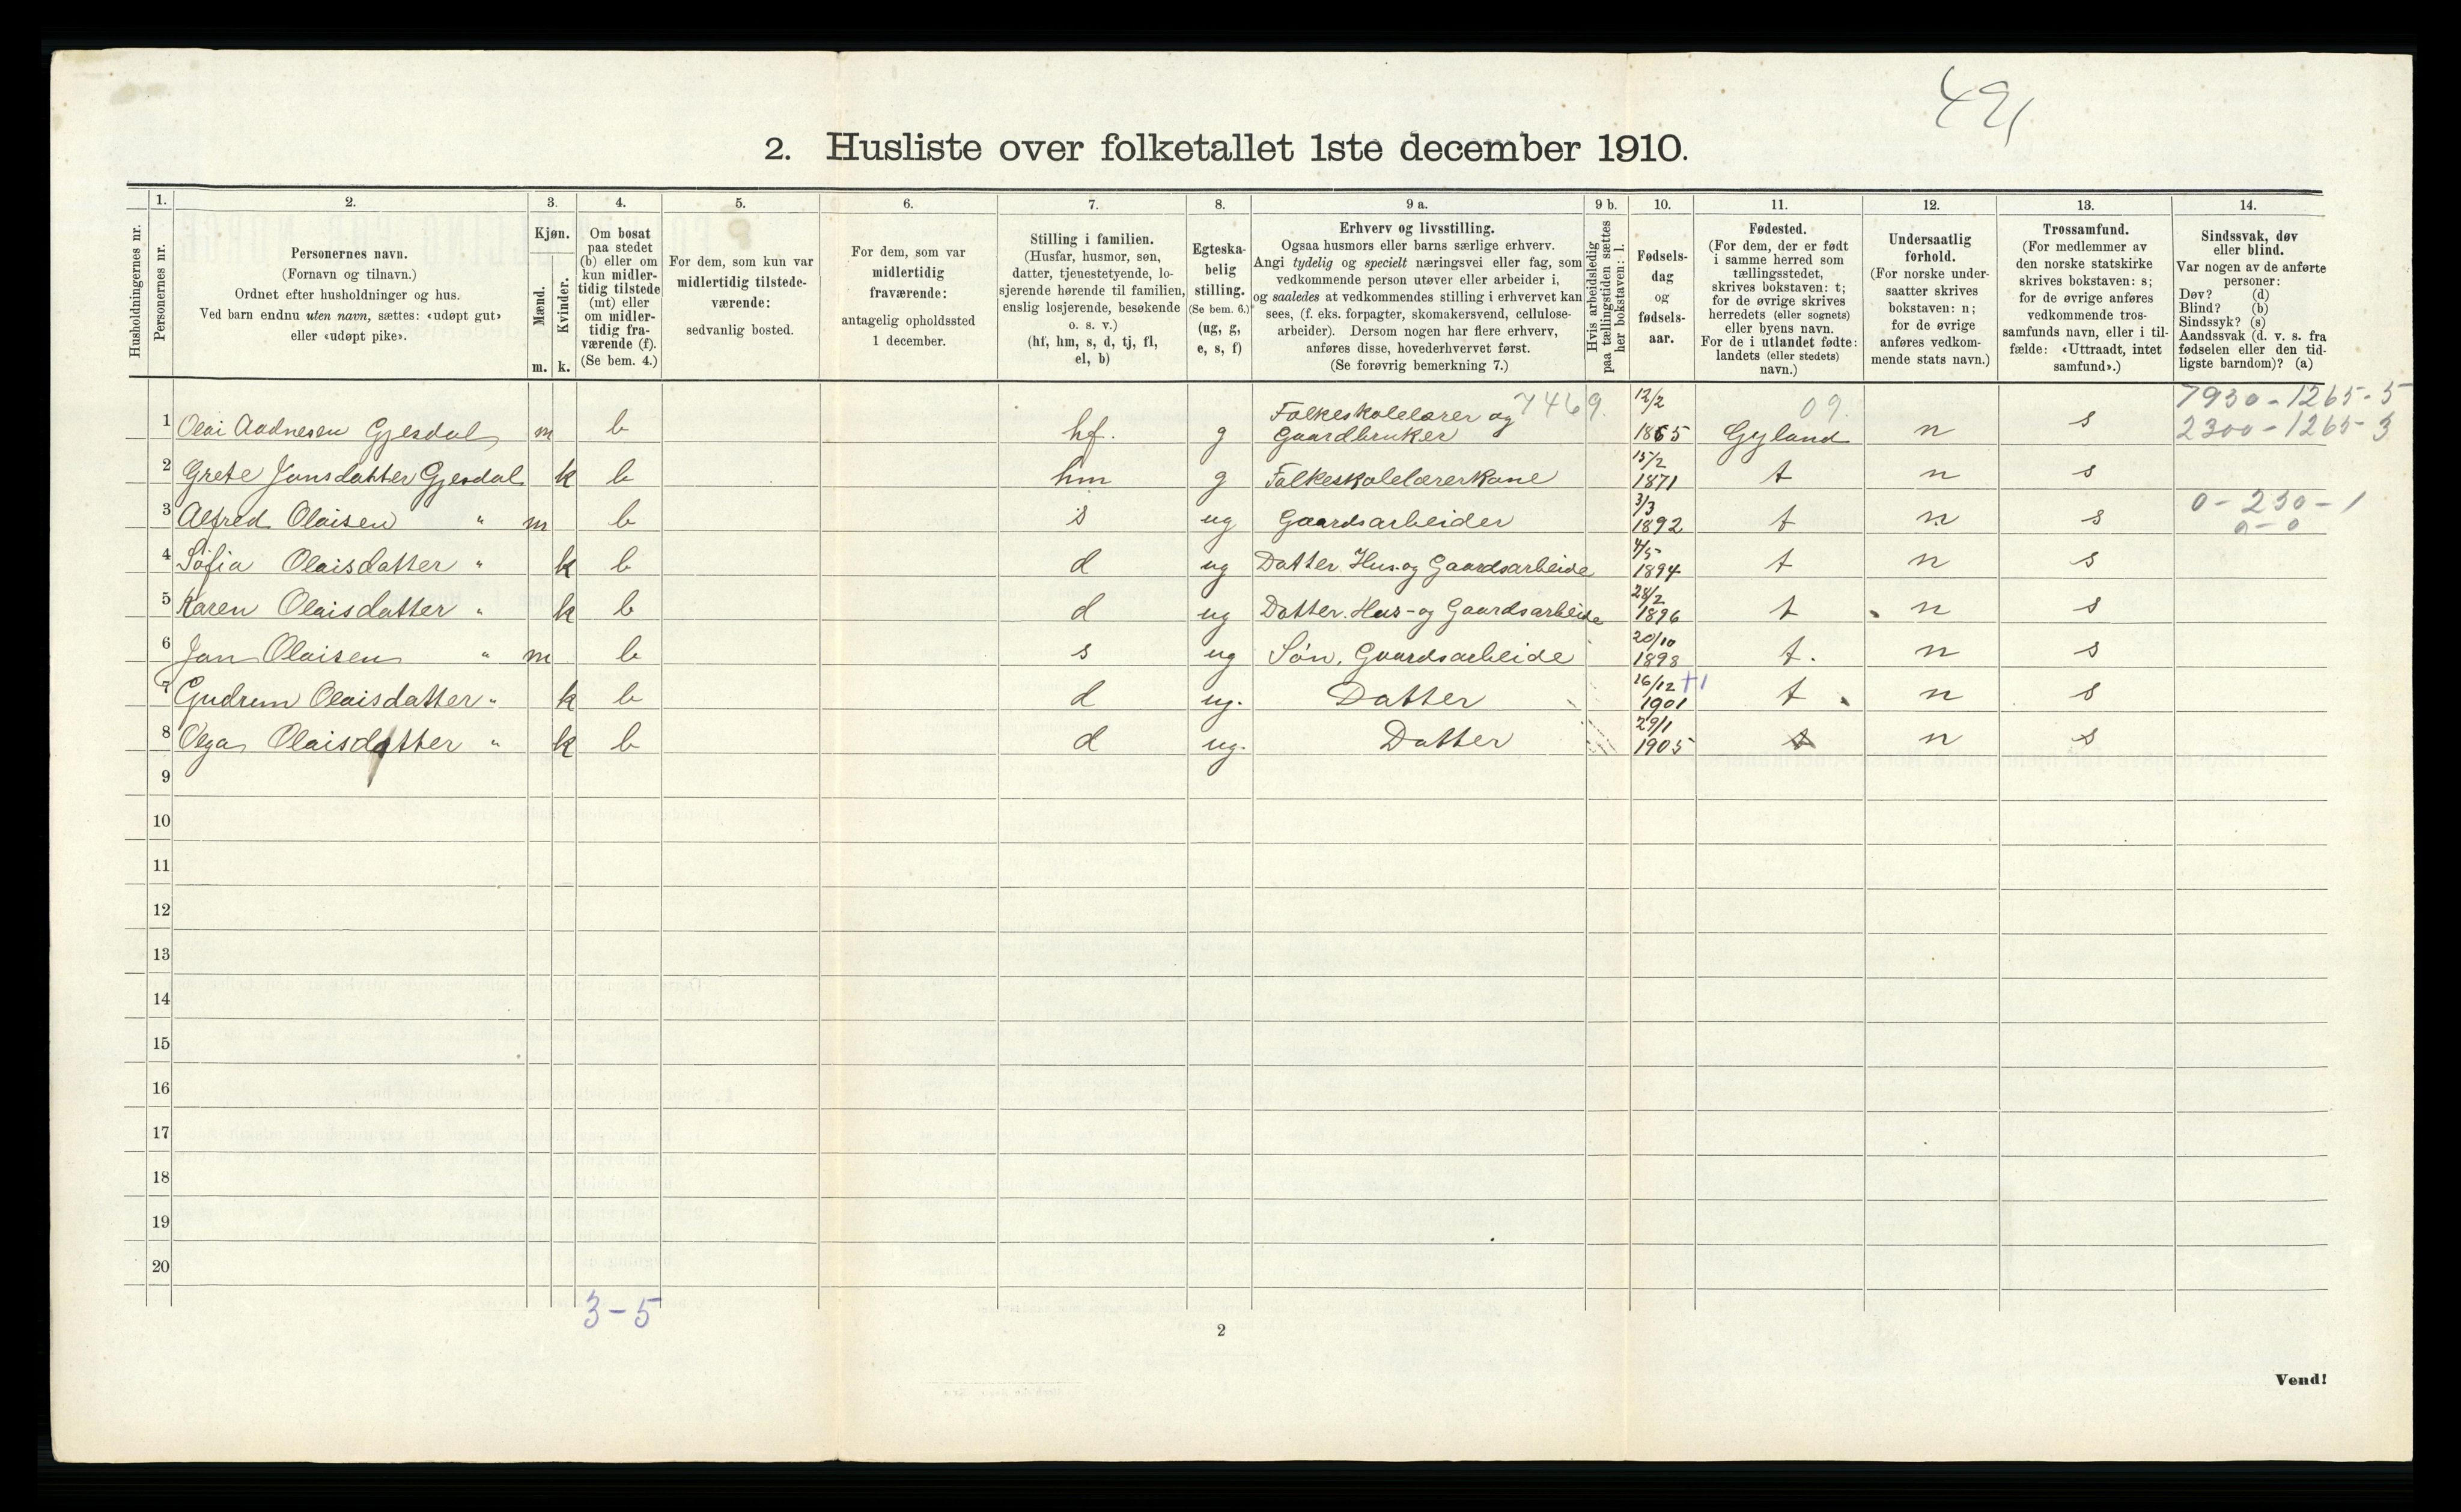 491
2. Husliste over folketallet 1ste december 1910.
1. 2. 3. 4. 5. 6. 7. 8. 9 a. 9 b. 10. 11. 12. 13. 14.
Husholdningernes nr.
Personernes nr.
Personernes navn.
(Fornavn og tilnavn.)
Ordnet efter husholdninger og hus.
Ved barn endnu uten navn, sættes: «udøpt gut»
eller «udøpt pike».
Kjøn.
Mænd.
Kvinder.
m. k.
Om bosat
paa stedet
(b) eller om
kun midler-
tidig tilstede
(mt) eller
om midler-
tidig fra-
værende (f).
(Se bem. 4.)
For dem, som kun var
midlertidig tilstede-
værende:
sedvanlig bosted.
For dem, som var
midlertidig
fraværende:
antagelig opholdssted
1 december.
Stilling i familien.
(Husfar, husmor, søn,
datter, tjenestetyende, lo-
sjerende hørende til familien,
enslig losjerende, besøkende
o. s. v.)
(hf, hm, s, d, tj, fl,
el, b)
Egteska-
belig
stilling.
(Se bem. 6.)
(ug, g,
e, s, f)
Erhverv og livsstilling.
Ogsaa husmors eller barns særlige erhverv.
Angi tydelig og specielt næringsvei eller fag, som
vedkommende person utøver eller arbeider i,
og saaledes at vedkommendes stilling i erhvervet kan
sees, (f. eks. forpagter, skomakersvend, cellulose-
arbeider). Dersom nogen har flere erhverv,
anføres disse, hovederhvervet først.
(Se forøvrig bemerkning 7.)
Hvis arbeidsledig
paa tællingstiden sættes
her bokstaven: l.
Fødsels-
dag
og
fødsels-
aar.
Fødested.
(For dem, der er født
i samme herred som
tællingsstedet,
skrives bokstaven: t;
for de øvrige skrives
herredets (eller sognets)
eller byens navn.
For de i utlandet fødte:
landets (eller stedets)
navn.)
Undersaatlig
forhold.
(For norske under-
saatter skrives
bokstaven: n;
for de øvrige
anføres vedkom-
mende stats navn.)
Trossamfund.
(For medlemmer av
den norske statskirke
skrives bokstaven: s;
for de øvrige anføres
vedkommende tros-
samfunds navn, eller i til-
fælde: «Uttraadt, intet
samfund».)
Sindssvak, døv
eller blind.
Var nogen av de anførte
personer:
Døv? (d)
Blind? (b)
Sindssyk? (s)
Aandssvak (d. v. s. fra
fødselen eller den tid-
ligste barndom)? (a)
Folkeskolelærer og 7469. 12/2 09. 7930-1265-5
1 Olai Aadnesen Gjesdal m b hf. g Gaardbruker 1865 Gyland n s 2300-1265-3
15/2
2 Grete Jonsdatter Gjesdal k b hm g Folkeskolelærerkone 1871 t n s
3/3 0-230-1
3 Alfred Olaisen " m b s ug Gaardsarbeider 1892 t n s 0-0
4/5
4 Sofia Olaisdatter " k b d ug Datter. Hus-og Gaardsarbeide 1894 t n s
28/2
5 Karen Olaisdatter " k b d ug Datter. Hus-og Gaardsarbeide 1896 t n s
20/10
6 Jan Olaisen " m b s ug Søn. Gaardsarbeide 1898 t. n s
16/12 +1
7 Gudrun Olaisdatter " k b d ug. Datter 1901 t n s
29/1
8 Olga Olaisdatter " k b d ug. Datter 1905 t n s
9
10
11
12
13
14
15
16
17
18
19
20
3-5
2
Vend!